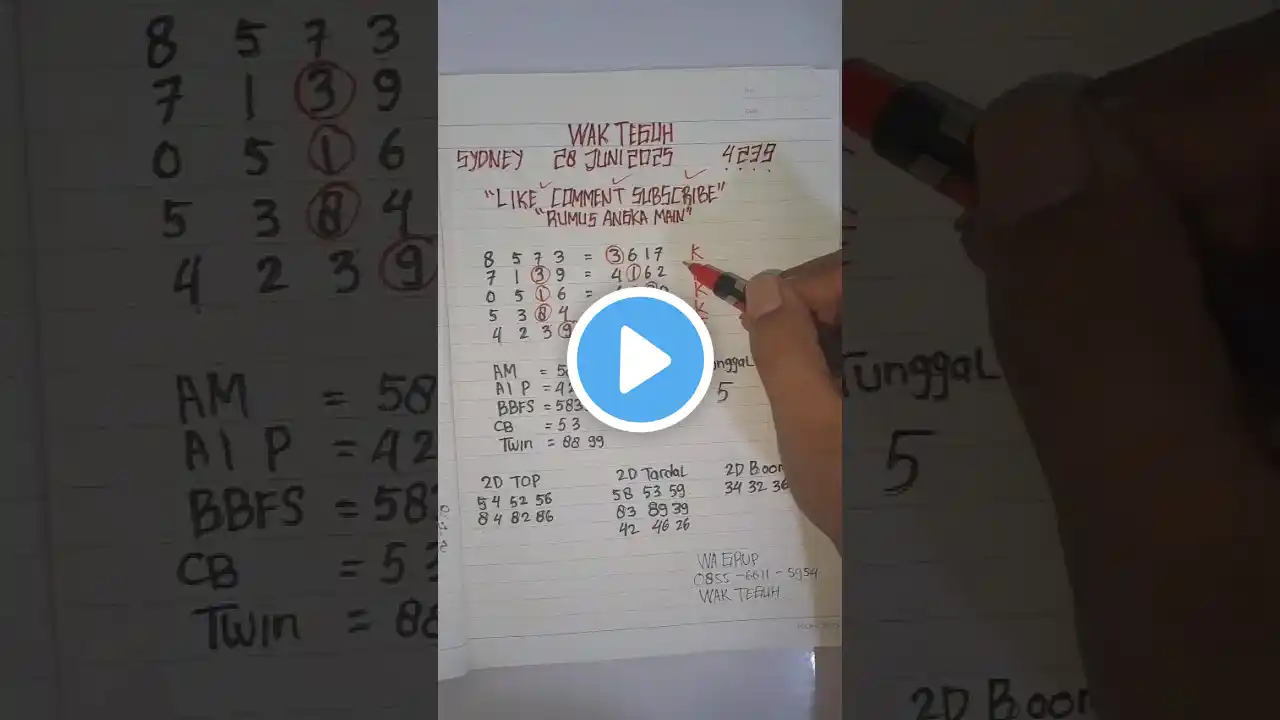 WAK TEGUH
SYDNEY 28 JUNI 2025 4239
"LIKE COMMENT SUBSCRIBE"
"RUMUS ANGKA MAIN"
8 5 7 3 = 3 6 1 7 K
7 1 3 9 = 4 1 6 2
0 5 1 6 = K
5 3 8 4 K
4 2 3 9
AM = 58
AI P = 42
BBFS = 583
CB = 5 3
Twin = 88 99
5
2D TOP
54 52 56
84 82 86
2D Tardal
58 53 59
83 89 39
42 46 26
2D Boom
34 32 36
WA GRUP
0855-6611-5954
WAK TEGUH
8 5 7 3
7 1 3 9
0 5 1 6
5 3 8 4
4 2 3 9
AM = 58
AI P = 42
BBFS = 58
CB = 5 3
Twin = 88
Tunggal
5
2D Boom